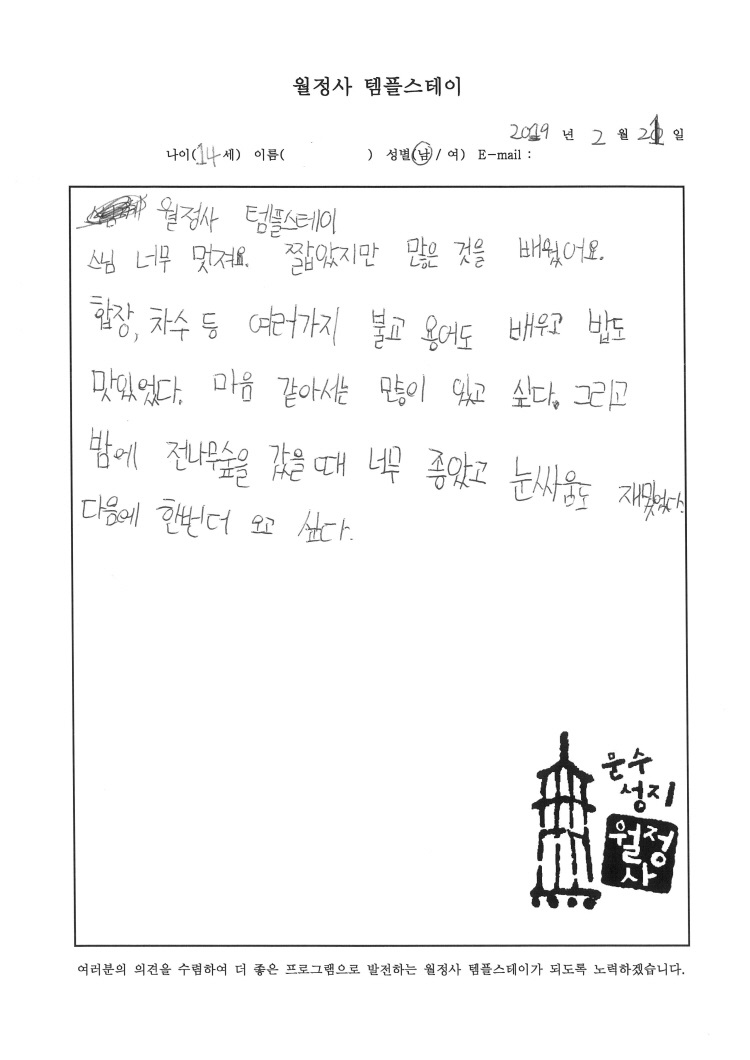 월정사 템플스테이
2019 년 2 월 21 일
나이(14세) 이름( ) 성별(남/ 여) E-mail :
월정사 템플스테이
스님 너무 멋져요. 짧았지만 많은 것을 배웠어요.
합장, 차수 등 여러가지 불교 용어도 배우고 밥도
맛있었다. 마음 같아서는 많이 있고 싶다. 그리고
밤에 전나무숲을 갔을 때 너무 좋았고 눈싸움도 재밌었다.
다음에 한번더 오고 싶다.
문수
성지
월정
사
여러분의 의견을 수렴하여 더 좋은 프로그램으로 발전하는 월정사 템플스테이가 되도록 노력하겠습니다.